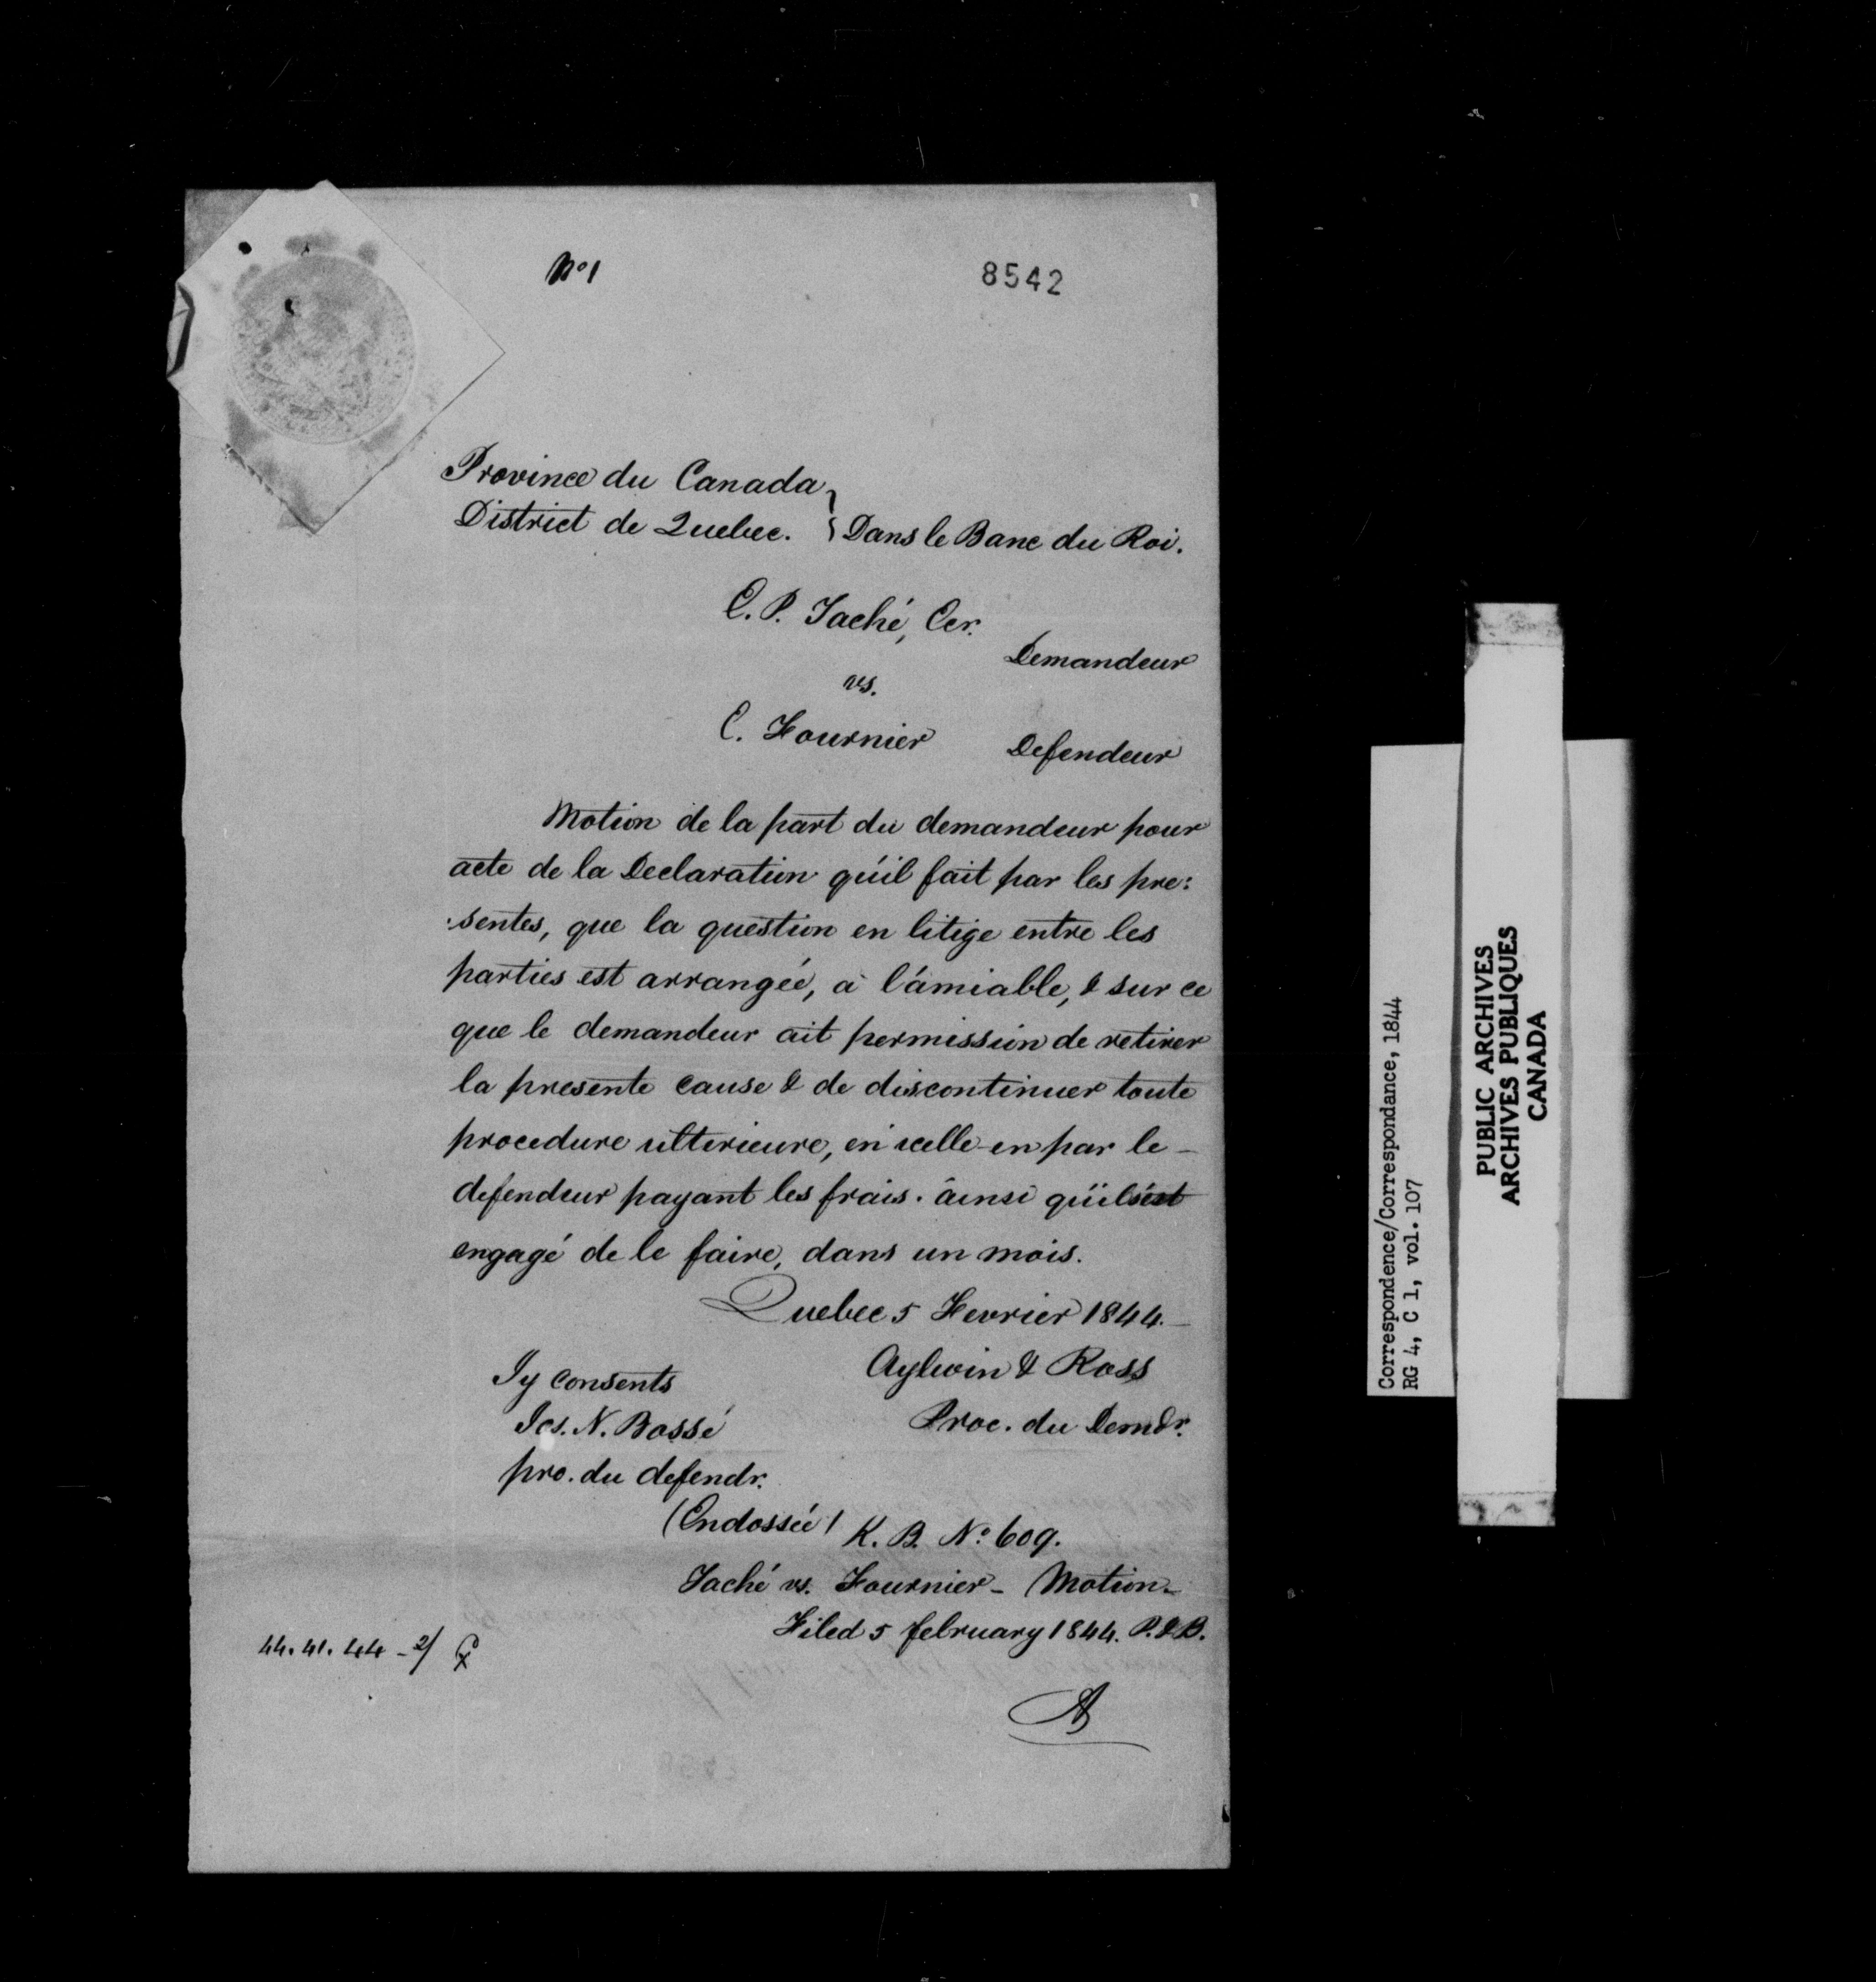 No 1
8542
Province du Canada }
District de Quebec. } Dans le Banc du Roi.
E. P. Taché, Ecr.
Demandeur
vs.
C. Fournier Defendeur
Motion de la part du demandeur pour
acte de la Declaration qu'il fait par les pre:
:sentes, que la question en litige entre les
parties est arrangée, à l'amiable, & sur ce
que le demandeur ait permission de retirer
la presente cause & de discontinuer toute
procedure ulterieure, en icelle en par le -
defendeur payant les frais. ainsi qu'il s'est
engagé de le faire, dans un mois.
Quebec 5 Fevrier 1844. -
Jy consents Aylwin & Ross
Jos. N. Bossé Proc. du Demdr.
pro. du defendr.
(Endossée) K. B. No. 609.
Taché vs. Fournier - Motion -
Filed 5 february 1844. P. & B.
44. 41. 44 - 2/
Correspondence/Correspondance, 1844
RG 4, C 1, vol. 107
PUBLIC ARCHIVES
ARCHIVES PUBLIQUES
CANADA